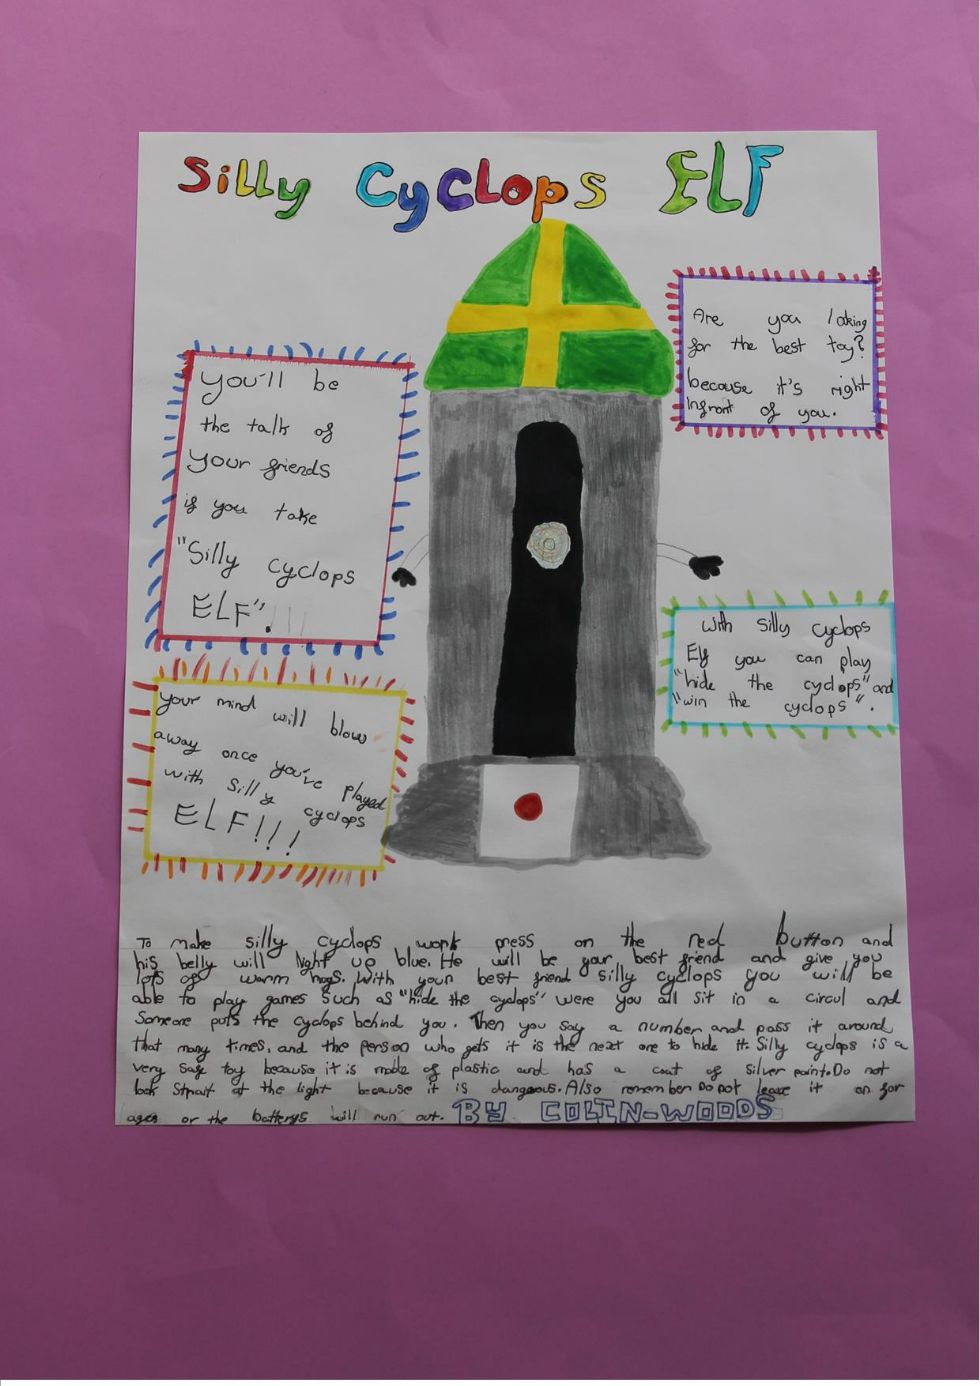 Silly Cyclops ELF
Are you loking
for the best toy?
because it's right
infront of you.
you'll be
the talk of
your friends
if you take
"Silly cyclops
ELF".
With silly cyclops
Elf you can play
"hide the cyclops" and
"win the cyclops".
your mind will blow
away once you've played
with silly cyclops
ELF!!!
To make silly cyclops work press on the red button and
his belly will light up blue. He will be your best friend and give you
lots of warm hugs. With your best friend silly cyclops you will be
able to play games such as "hide the cyclops" were you all sit in a circul and
Someone puts the cyclops behind you. Then you say a number and pass it around
that many times, and the person who gets it is the next one to hide it. Silly cyclops is a
very safe toy because it is made of plastic and has a coat of silver paint. Do not
look strait at the light because it is dangerous. Also remember Do not leave it on for
ages or the batterys will run out. BY COLIN-WOODS